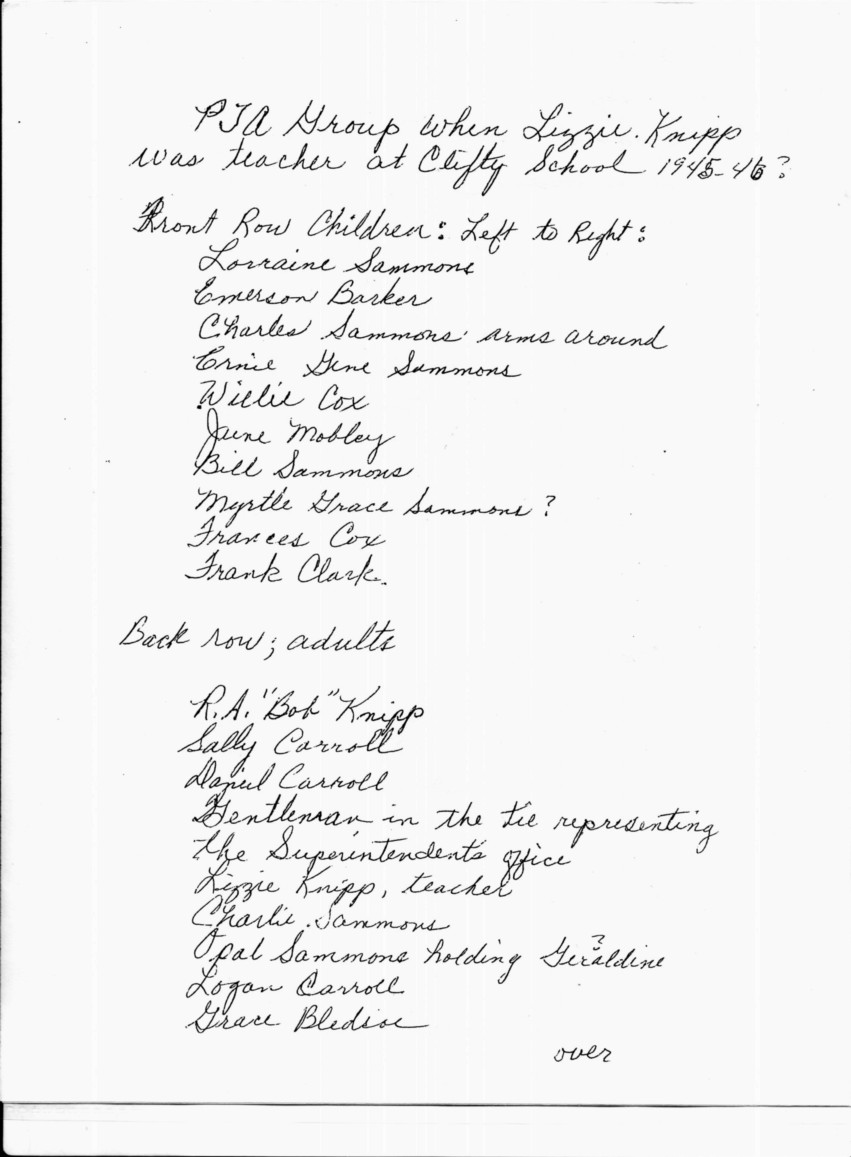 PTA Group when Lizzie Knipp
was teacher at Clifty School 1945-46?
Front Row Children: Left to Right:
Lorraine Sammons
Emerson Barker
Charles Sammons arms around
Ernie Gene Sammons
Willie Cox
June Mobley
Bill Sammons
Myrtle Grace Sammons?
Frances Cox
Frank Clark.
Back row; adults
R.A. "Bob" Knipp
Sally Carroll
Daniel Carroll
Gentleman in the tie representing
the Superintendent's office
Lizzie Knipp, teacher
Charlie Sammons
Opal Sammons holding Geraldine ?
Logan Carroll
Grace Bledsoe
over